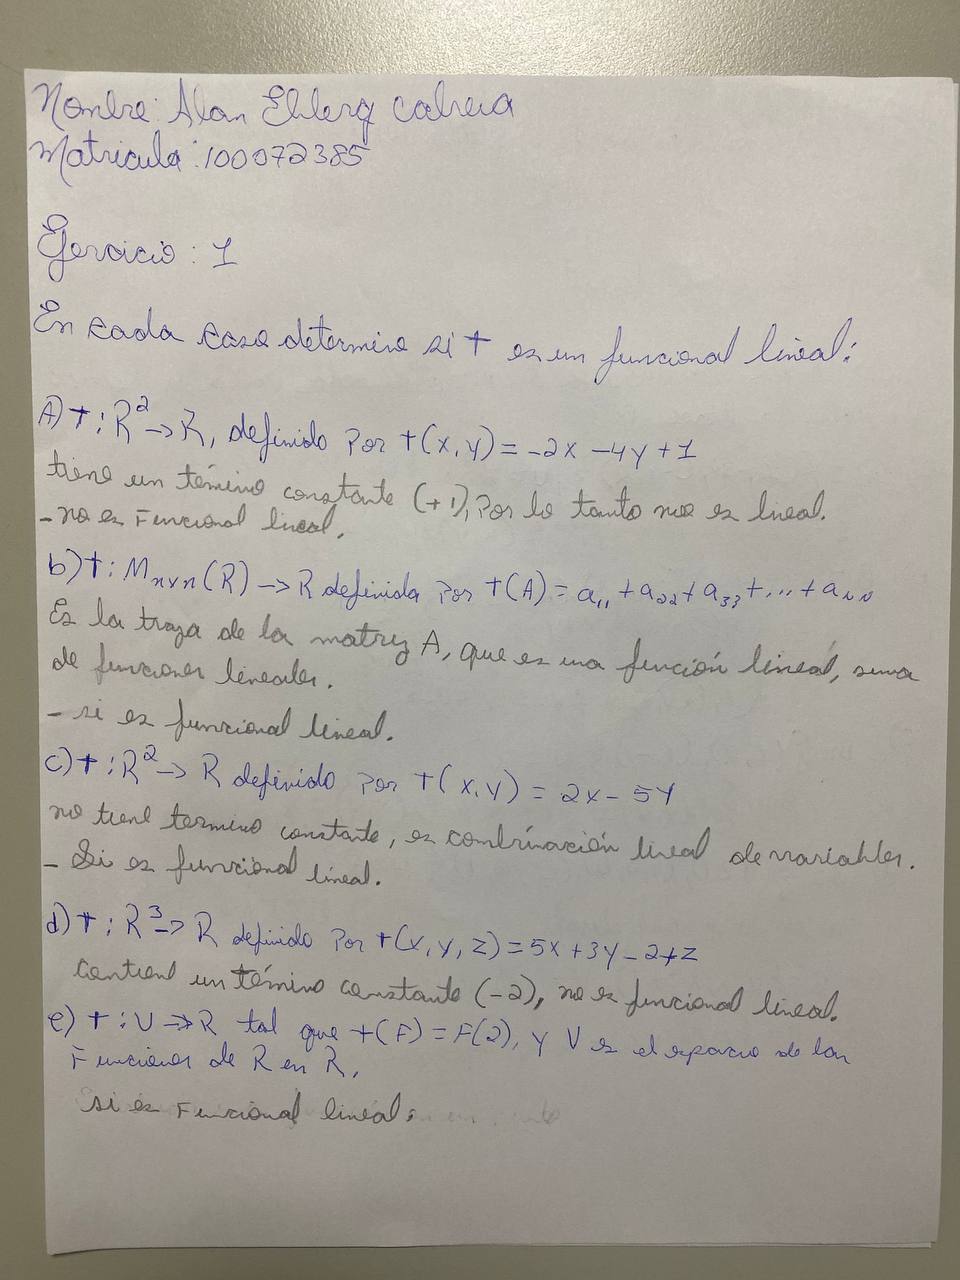 Nombre: Alan Ehlerq Cabrera
Matricula: 100072385
Ejercicio: 1
En cada caso determine si t es un funcional lineal:
A) t: R² → R, definido por t(x,y) = -2x -4y +1
tiene un témino constante (+1), Por lo tanto no es lineal.
- no es Funcional lineal.
b) t: Mnxn(R) → R definida por t(A) = a₁₁ + a₂₂ + a₃₃ + ... + aₙₙ
Es la traza de la matriz A, que es una función lineal, suma
de funciones lineales.
- si es funcional lineal.
c) t: R² → R definido por t(x,y) = 2x - 5y
no tiene termino constante, es combinación lineal de variables.
- Si es funcional lineal.
d) t: R³ → R definido por t(x,y,z) = 5x + 3y - 2+z
contiene un témino constante (-2), no es funcional lineal.
e) t: V → R tal que t(F) = F(2), y V es el espacio de las
Funciones de R en R.
si es Funcional lineal.